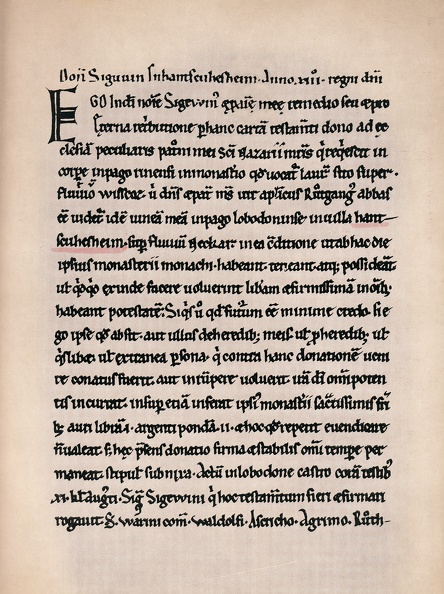 Doñ Siguuin Inhantscuhesheim· Anno· xiiii· regni dñi
EGO Indĩ noïe Sigewin' &p aïe meę remedio seu &pro
ęterna retributione p hanc cartã testamti dono ad ec
clesiã peculiaris patroni mei Sci Nazarii mris q̃ requescit in
corpe inpago rinensi inmonastio qđ uocat laurissa sito super
fluuiũ wisscoz· ũ dñs &pat ms uir aplicus Růtgang' abbas
eē uidet idē uineã meã inpago lobodoninse· in uilla hant-
scuhesheim· sup fluuiũ Neckar· in ea cditione ut ab hac die
ipsius monasterii monachi habeant· teneant atq; possideãt·
ut qđqd exinde facere uoluerint libam &firmissimã in oīb;
habeant potestatẽ· Siq̃s ũ qđ futurum eē minime credo· si e-
go ipse qđ absit· aut ullus de heredib; meis· ul pheredib; ul
q̃slibe· ul extranea psona· q̃ contra hanc donationẽ ueni
re conatus fuerit· aut inrūpere uoluerit irã dī omipoten
tis incurrat· insup etiã inferat ipsi monastii sactissimis fri
b; auri librã·i· argenti pondã·ii· &hoc qđ repetit euendicare
n̄ualeat· s; hęc p̄sens donatio firma &stabilis omi tempe per
maneat· stipul subnixa· Actũ in lobodone castro corã testib;
·xi· kl' Augti· Sig Sigewini q̃ hoc testamtum fieri &firmari
rogauit· S· warini com· waldolfi· Asericho· Agrimo· Růth-